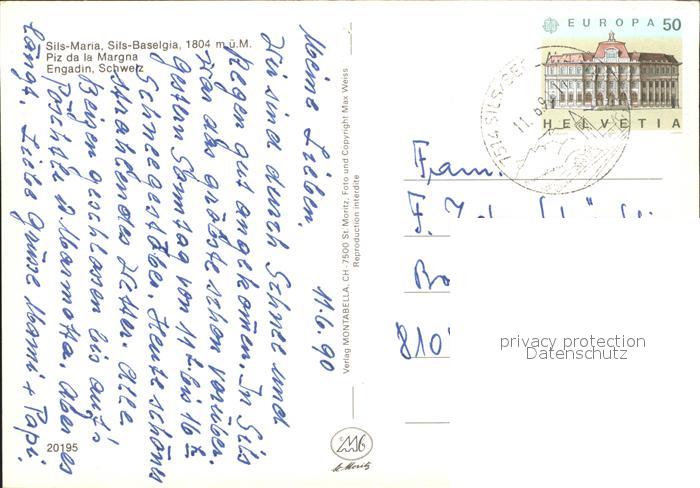 Sils-Maria, Sils-Baselgia, 1804 m ü.M.
Piz da la Margna
Engadin, Schweiz
11.6.90
Meine Lieben,
Wir sind durch Schnee und
Regen gut angekomen. In Sils
war das grösste schon vorüber.
gestern Sonntag von 11 h. bis 16 h
Schneegestöber. Heute schönes
strahlendes Wetter. Alle
Beizen geschlossen bis auf's
Pöschtli u. Marmotta. Aber es
längt. Liebe Grüsse Mami + Papi.
20195
Verlag MONTABELLA, CH-7500 St. Moritz, Foto und Copyright Max Weiss
Reproduction interdite
St. Moritz
EUROPA 50
HELVETIA
7514 SILS/SE
11.6.9
Fam.
F.
810
privacy protection
Datenschutz